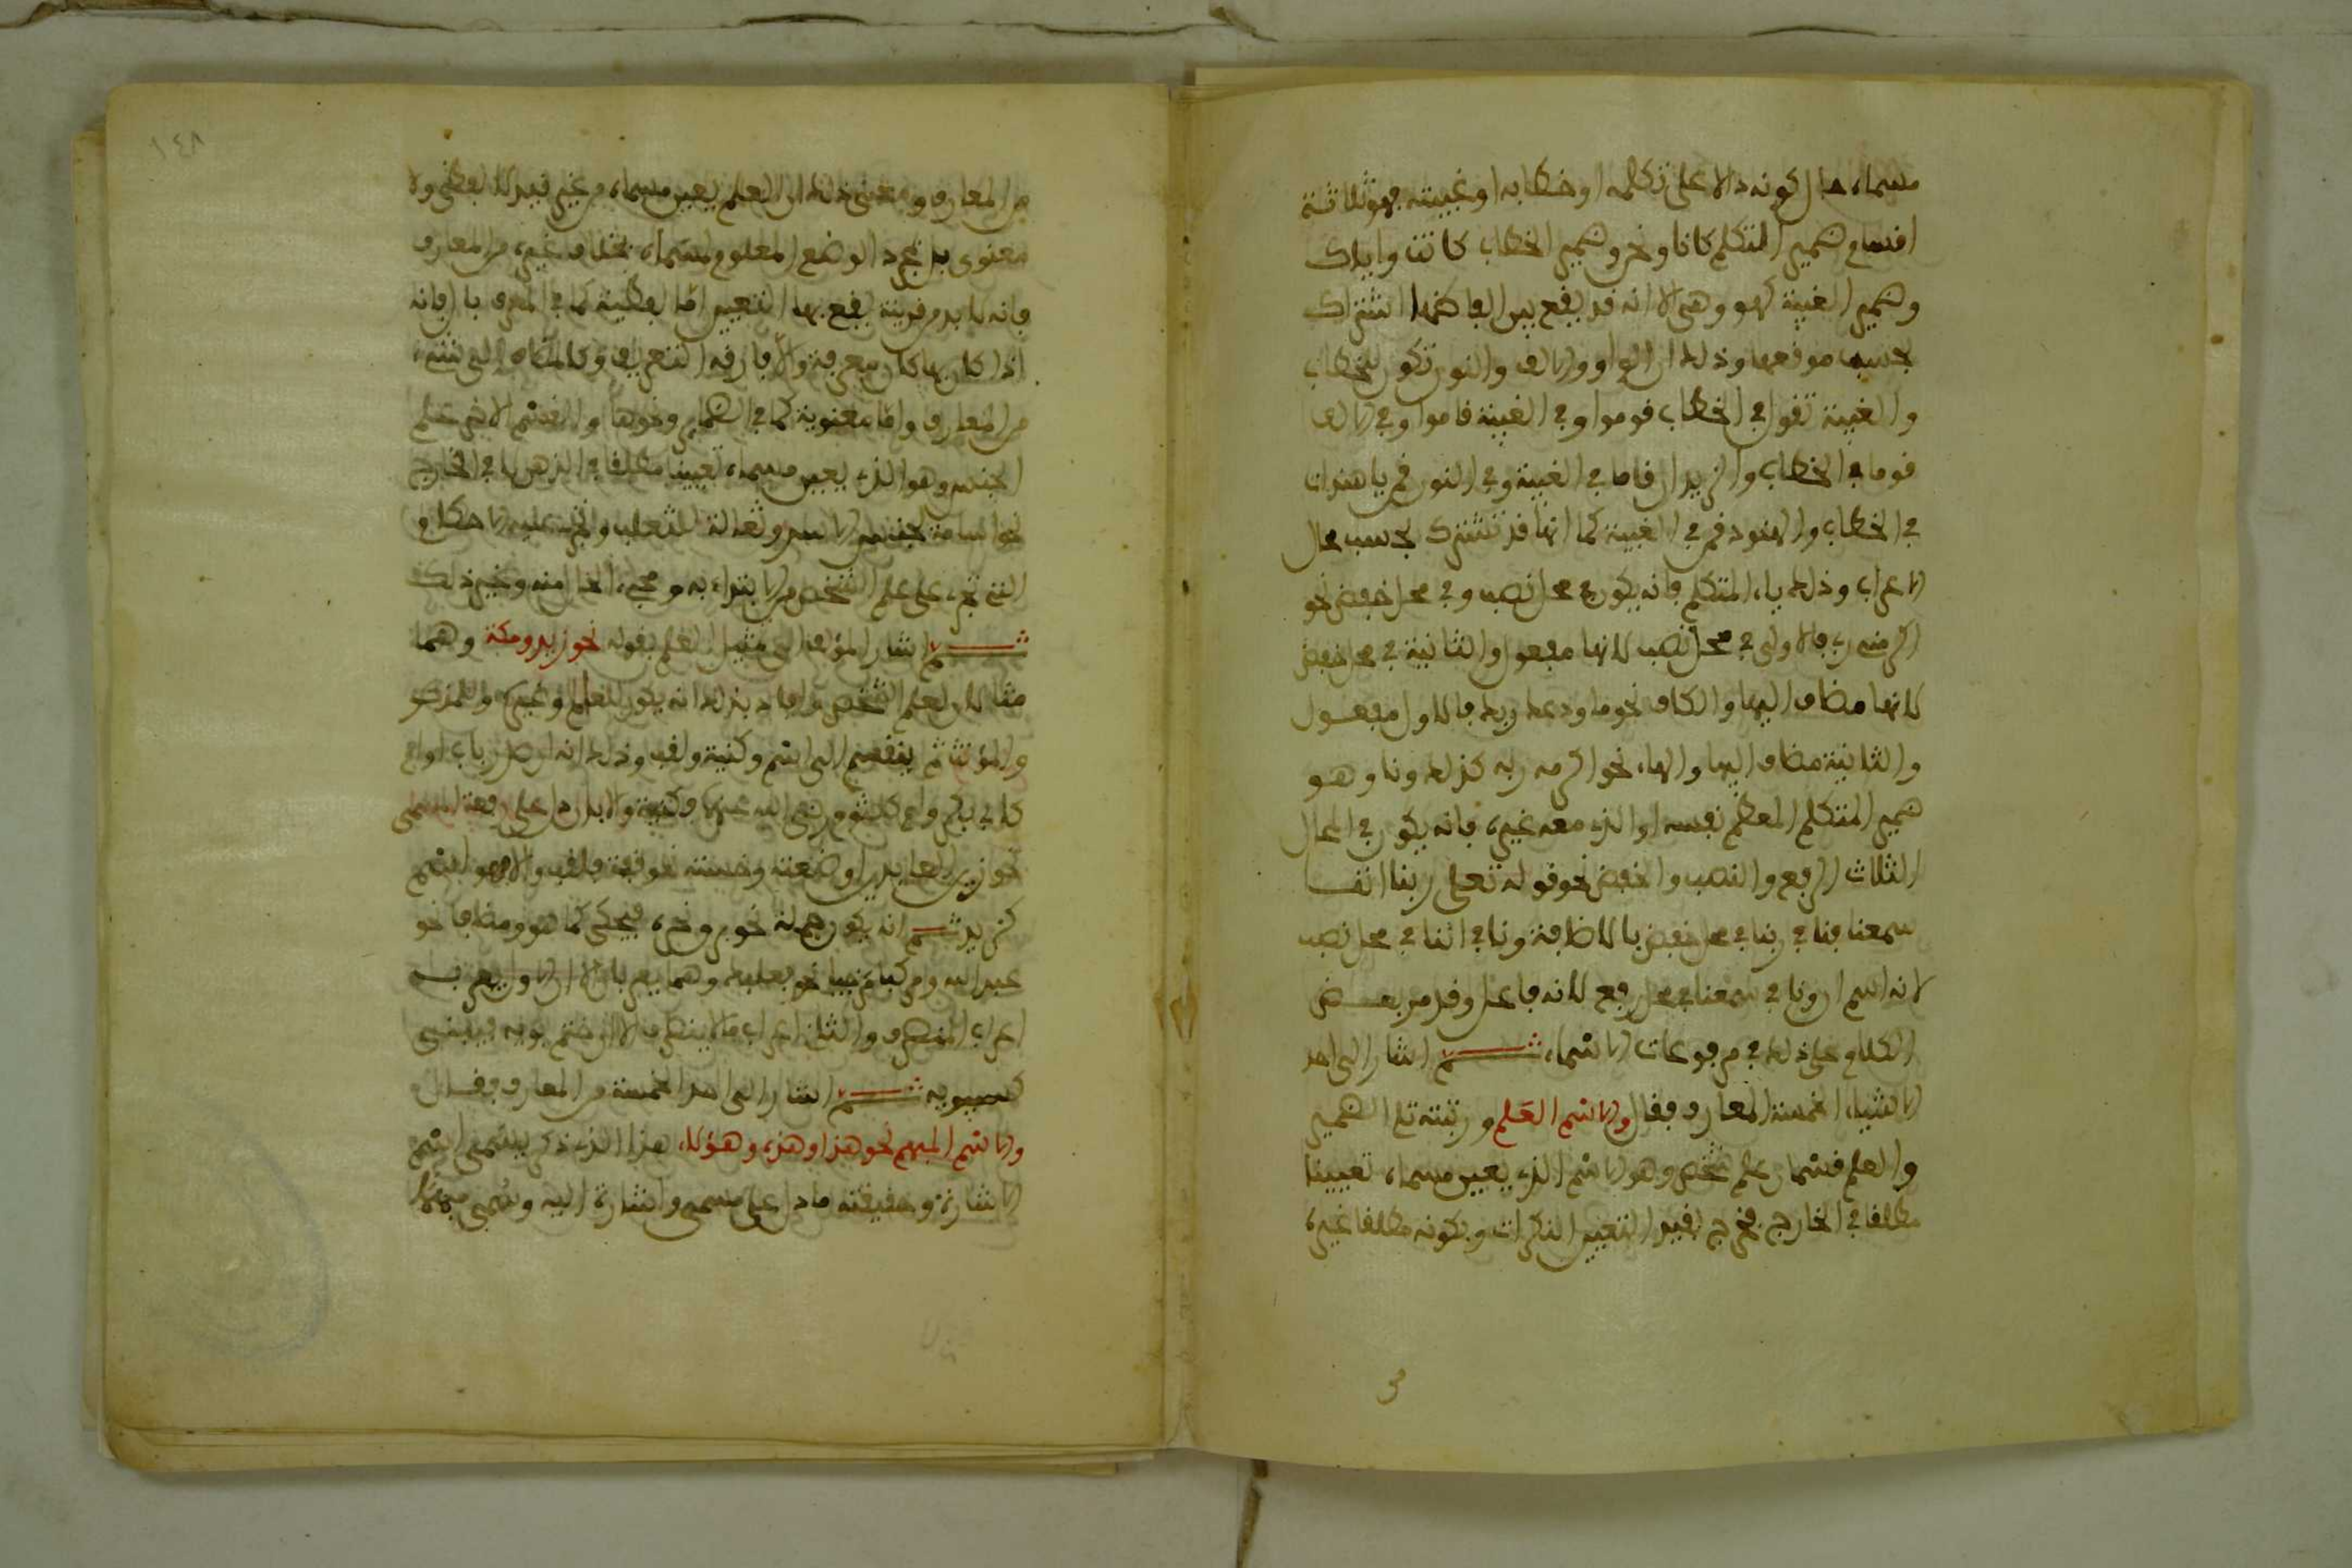 مسماه حال كونه دالا على تكلمه او خطابه او غيبته فهو ثلاثة
اقسام ضمير المتكلم كانا ونحن وضمير الخطاب كانت واياك
وضمير الغيبة كهو وهي الا انه قد يقع بين الفاظها اشتراك
بحسب موقعها وذلك ان الواو والالف والنون تكون للخطاب
والغيبة تقول في الخطاب قوموا وفي الغيبة قاموا وفي الالف
قوما في الخطاب والزيدان قاما في الغيبة وفي النون قمن يا هندات
في الخطاب والهنود قمن في الغيبة كما انها قد تشترك بحسب محال
الاعراب وذلك ياء المتكلم فانه يكون في محل نصب وفي محل خفض نحو
اكرمني ربي فالاولى في محل نصب لانها مفعول والثانية في محل خفض
لانها مضاف اليها والكاف نحو ما ودعك ربك فالاول مفعول
والثانية مضاف اليها والهاء نحو اكرمه ربه كذلك ونا وهو
ضمير المتكلم المعظم نفسه او الذي معه غيره فانه يكون في المحال
الثلاث الرفع والنصب والخفض نحو قوله تعلى ربنا اننا
سمعنا فنا في ربنا في محل خفض بالاضافة ونا في اننا في محل نصب
لانه اسم ان ونا في سمعنا في محل رفع لانه فاعل وقد مر بعض
الكلام على ذلك في مرفوعات الاسماء ثم اشار الى احد
الاشياء الخمسة المعارف فقال والاسم العلم ورتبته تلا الضمير
والعلم قسمان علم شخص وهو الاسم الذي يعين مسماه تعيينا
مطلقا في الخارج فخرج بقيد التعيين النكرات وبكونه مطلقا غيره
١٤٨
من المعارف ومعنى ذلك ان العلم يعين مسماه من غير قيد لا لفظي ولا
معنوي بل بمجرد الوضع المعلوم لمسماه بخلاف غيره من المعارف
فانه لا بد من قرينة يقع بها التعيين اما لفظية كما في المعرف بال فانه
اذا كان بها كان معرفة والا فارقه التعريف وكالمضاف الى شيء
من المعارف واما معنوية كما في الضمائر ونحوها والقسم الاخر علم
الجنس وهو الذي يعين مسماه تعيينا مطلقا في الذهن لا في الخارج
نحو اسامة لجنس الاسد وثعالة للثعلب وتجري عليه الاحكام
التي تجري على علم الشخص من الابتداء به ومجيء الحال منه وغير ذلك
ثم اشار المؤلف الى مثيل العلم بقوله نحو زيد ومكة وهما
مثالان لعلم الشخص وافاد بذلك انه يكون للعلم وغيره وللمذكر
والمؤنث ثم ينقسم الى اسم وكنية ولقب وذلك انه ان صدر باب او ام
كابي بكر وام كلثوم رضي الله عنها فكنية والا فان دل على رفعة المسمى
نحو زين العابدين او ضعته وخسته نحو قفة فلقب والا فهو اسم
كزيد ثم انه يكون جملة نحو برق نحره فيحكى كما هو ومضافا نحو
عبد الله ومركبا مزجيا نحو بعلبك وهما يعربان الا ان الاول يعرب
اعراب المنصرف والثاني اعراب ما لا ينصرف الا ان ختم بويه فيبنى
كسيبويه ثم اشار الى احد الخمسة من المعارف فقال
والاسم المبهم نحو هذا وهذه وهؤلاء هذا الذي ذكر يسمى اسم
الاشارة وحقيقته ما دل على مسمى واشارة اليه وسمي مبهما